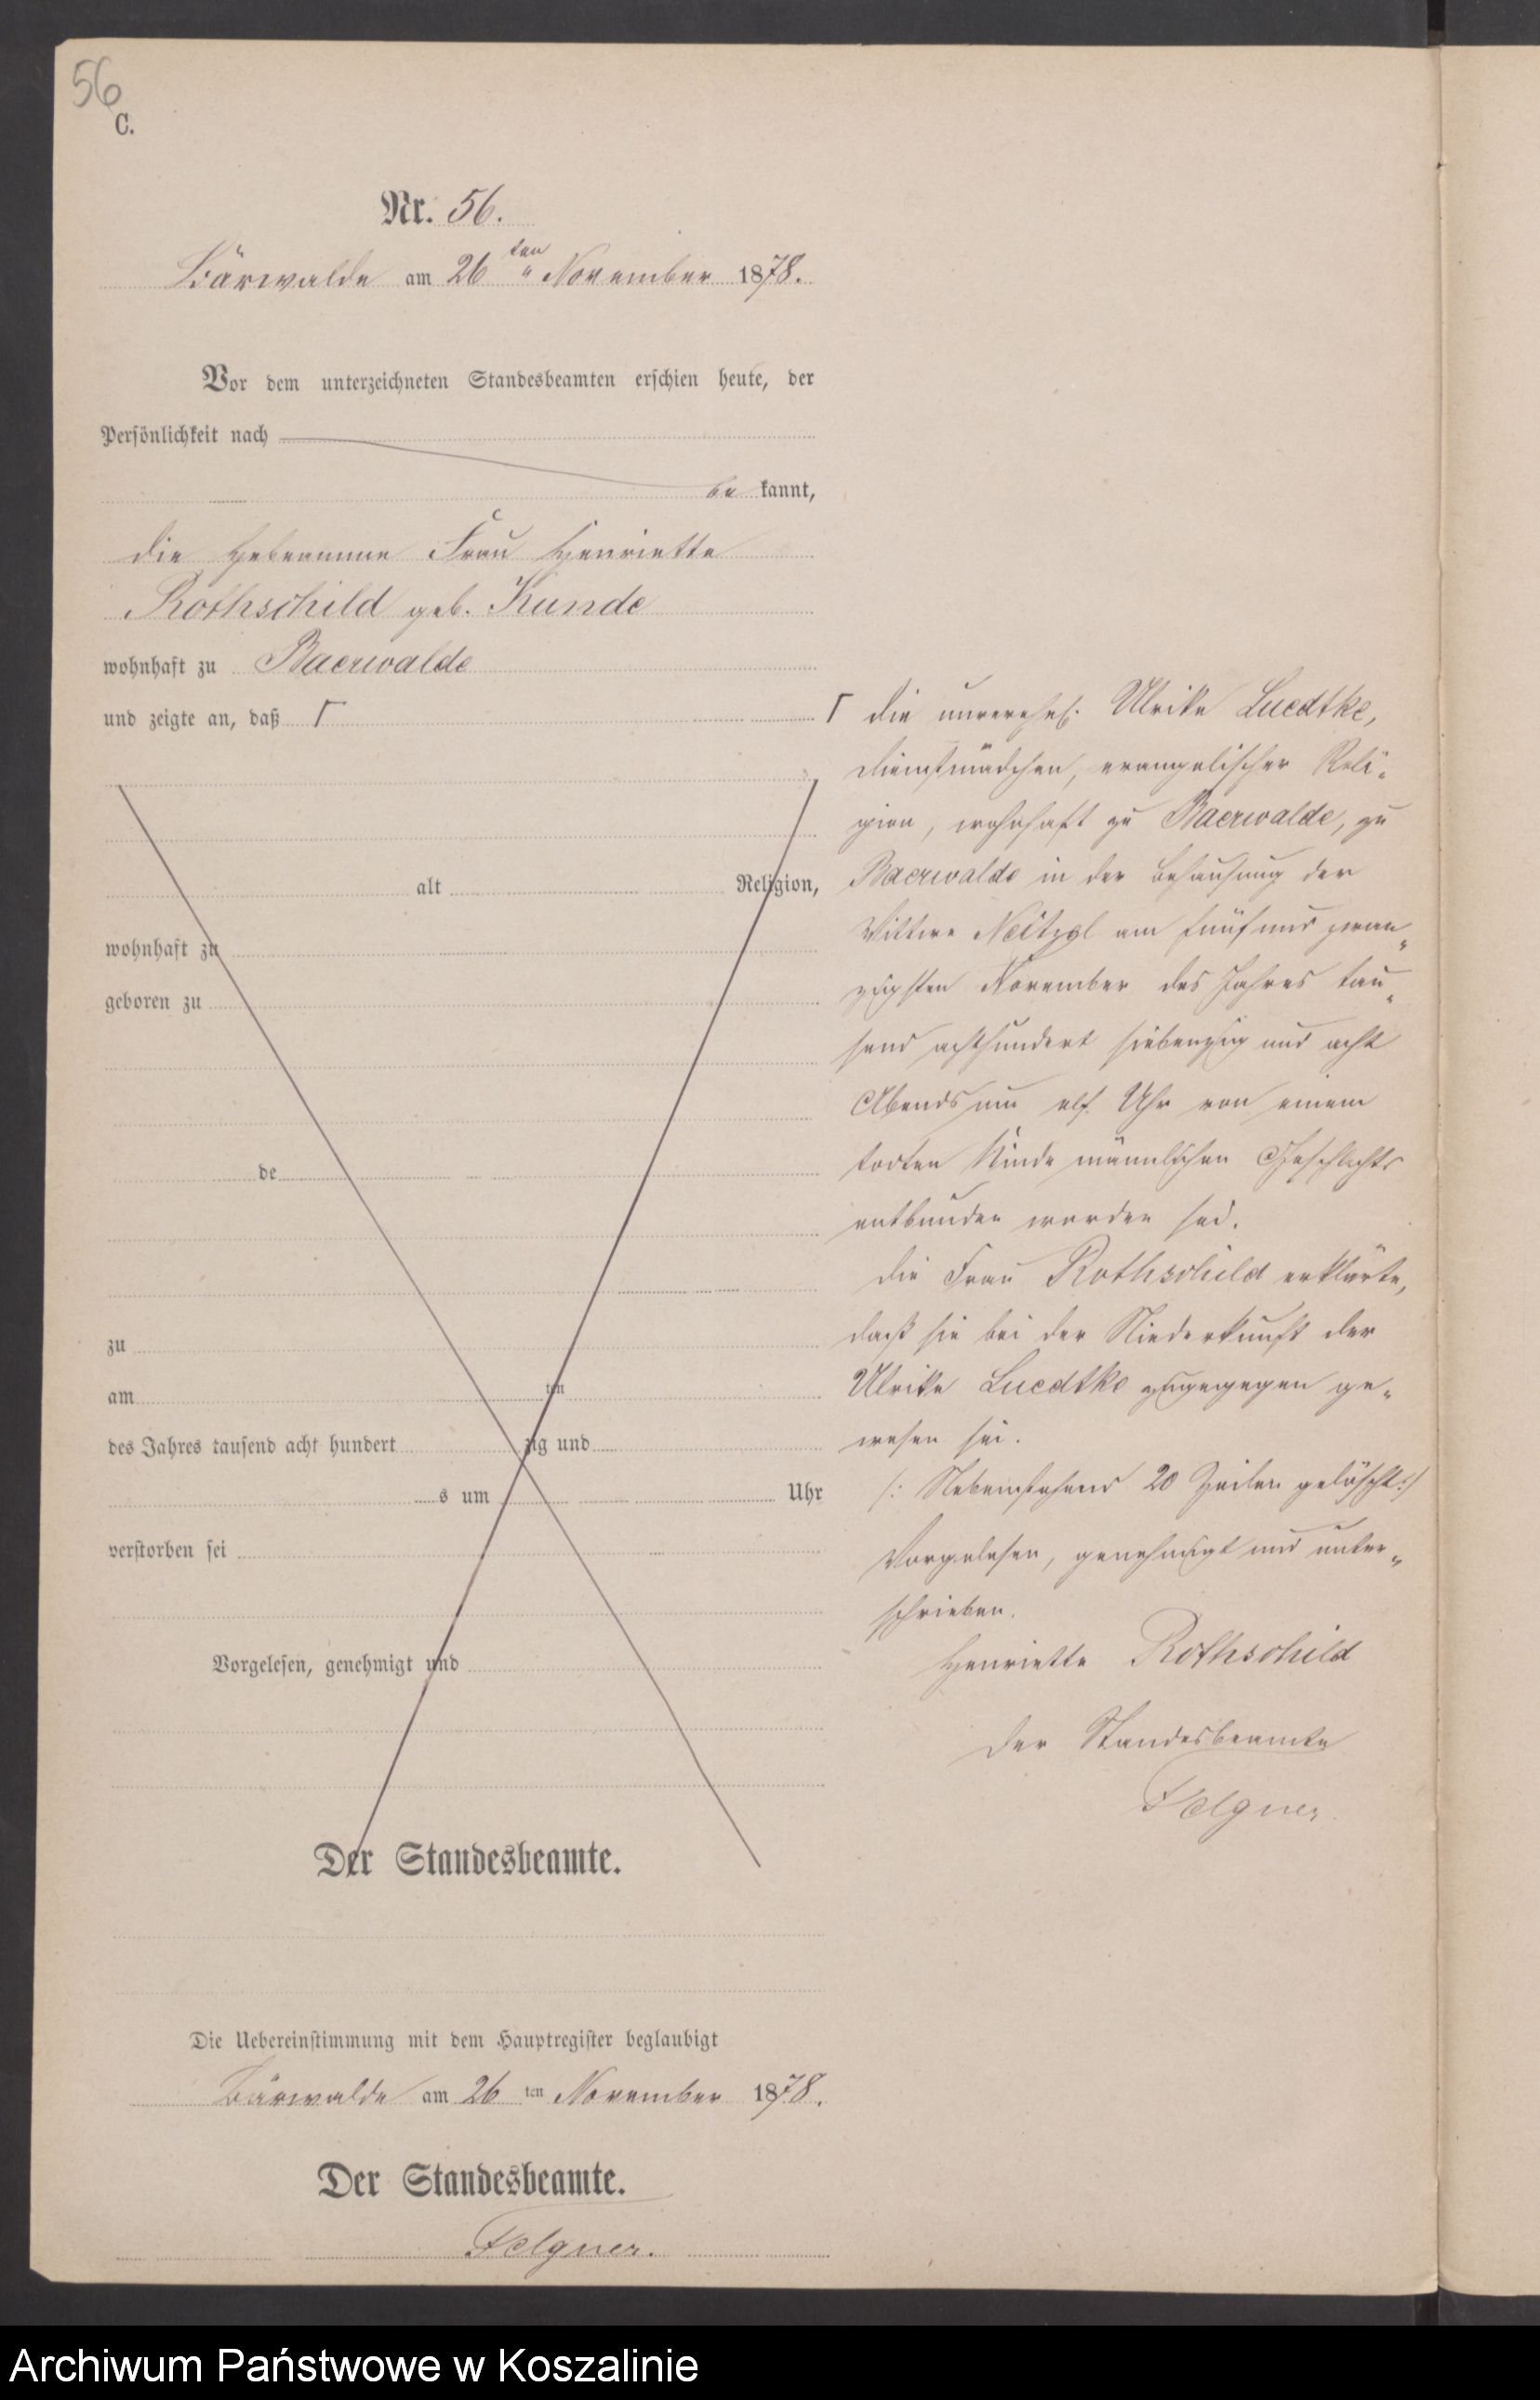 56
C.
Nr. 56.
Bärwalde am 26 ten November 1878.
Vor dem unterzeichneten Standesbeamten erschien heute, der
Persönlichkeit nach
be kannt,
die Hebeamme Frau Henriette
Rothschild geb. Kunde
wohnhaft zu Baerwalde
und zeigte an, daß Γ
alt Religion,
wohnhaft zu
geboren zu
de
zu
am ten
des Jahres tausend acht hundert zig und
s um Uhr
verstorben sei
Vorgelesen, genehmigt und
Der Standesbeamte.
Γ die unverehel. Ulrike Luedtke,
Dienstmädchen, evangelischer Reli-
gion, wohnhaft zu Baerwalde, zu
Baerwalde in der Behausung der
Wittwe Neitzel am fünf und zwan-
zigsten November des Jahres tau-
send achthundert siebenzig und acht
Abends um elf Uhr von einem
todten Kinde männlichen Geschlechts
entbunden worden sei.
Die Frau Rothschild erklärte,
daß sie bei der Niederkunft der
Ulrike Luedtke zugegegen ge-
wesen sei.
/: Nebenstehend 20 Zeilen gelöscht :/
Vorgelesen, genehmigt und unter-
schrieben.
Henriette Rothschild
Der Standesbeamte
Felgner.
Die Uebereinstimmung mit dem Hauptregister beglaubigt
Bärwalde am 26 ten November 1878.
Der Standesbeamte.
Felgner.
Archiwum Państwowe w Koszalinie